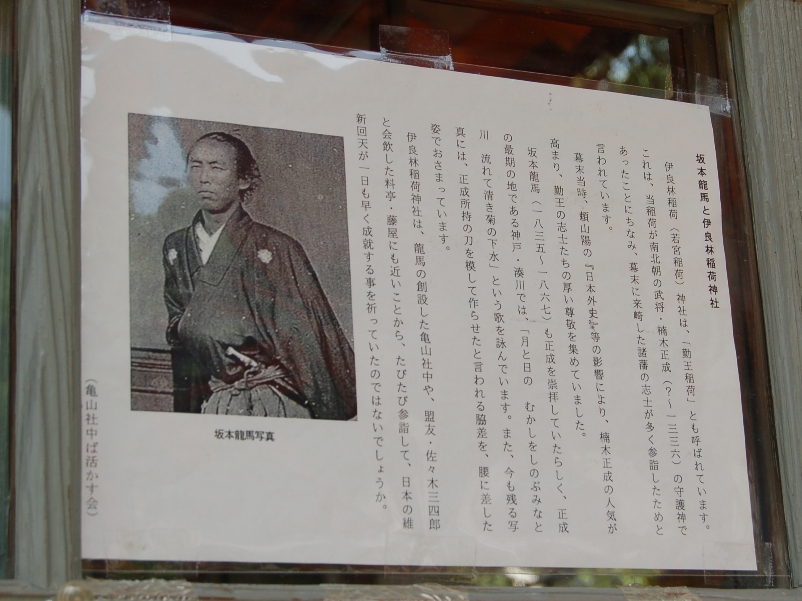 坂本龍馬と伊良林稲荷神社
伊良林稲荷（若宮稲荷）神社は、「勤王稲荷」とも呼ばれています。
これは、当稲荷が南北朝の武将・楠木正成（？～一三三六）の守護神で
あったことにちなみ、幕末に来崎した諸藩の志士が多く参詣したためと
言われています。
幕末当時、頼山陽の『日本外史』等の影響により、楠木正成の人気が
高まり、勤王の志士たちの厚い尊敬を集めていました。
坂本龍馬（一八三五～一八六七）も正成を崇拝していたらしく、正成
の最期の地である神戸・湊川では、「月と日の　むかしをしのぶみなと
川　流れて清き菊の下水」という歌を詠んでいます。また、今も残る写
真には、正成所持の刀を模して作らせたと言われる脇差を、腰に差した
姿でおさまっています。
伊良林稲荷神社は、龍馬の創設した亀山社中や、盟友・佐々木三四郎
と会飲した料亭・藤屋にも近いことから、たびたび参詣して、日本の維
新回天が一日も早く成就する事を祈っていたのではないでしょうか。
坂本龍馬写真
（亀山社中ば活かす会）